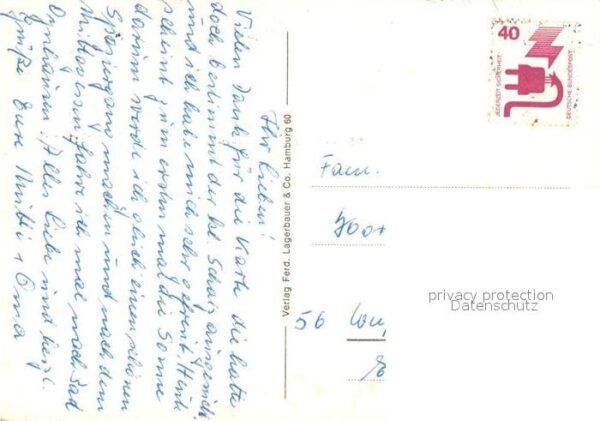 Ihr Lieben!
Vielen Dank für die Karte die hatte
doch bestimmt der kl. Schatz ausgesucht
und ich habe mich sehr gefreut. Heute
scheint zum ersten mal die Sonne
darum werde ich gleich einen schönen
Spaziergang machen und nach dem
Mittagessen fahre ich mal nach Bad
Oynhausen. Alles Liebe und herzl.
Grüße Eure Mutti + Oma
Verlag Ferd. Lagerbauer & Co. Hamburg 60
40
JEDERZEIT SICHERHEIT
DEUTSCHE BUNDESPOST
Fam.
56
privacy protection
Datenschutz